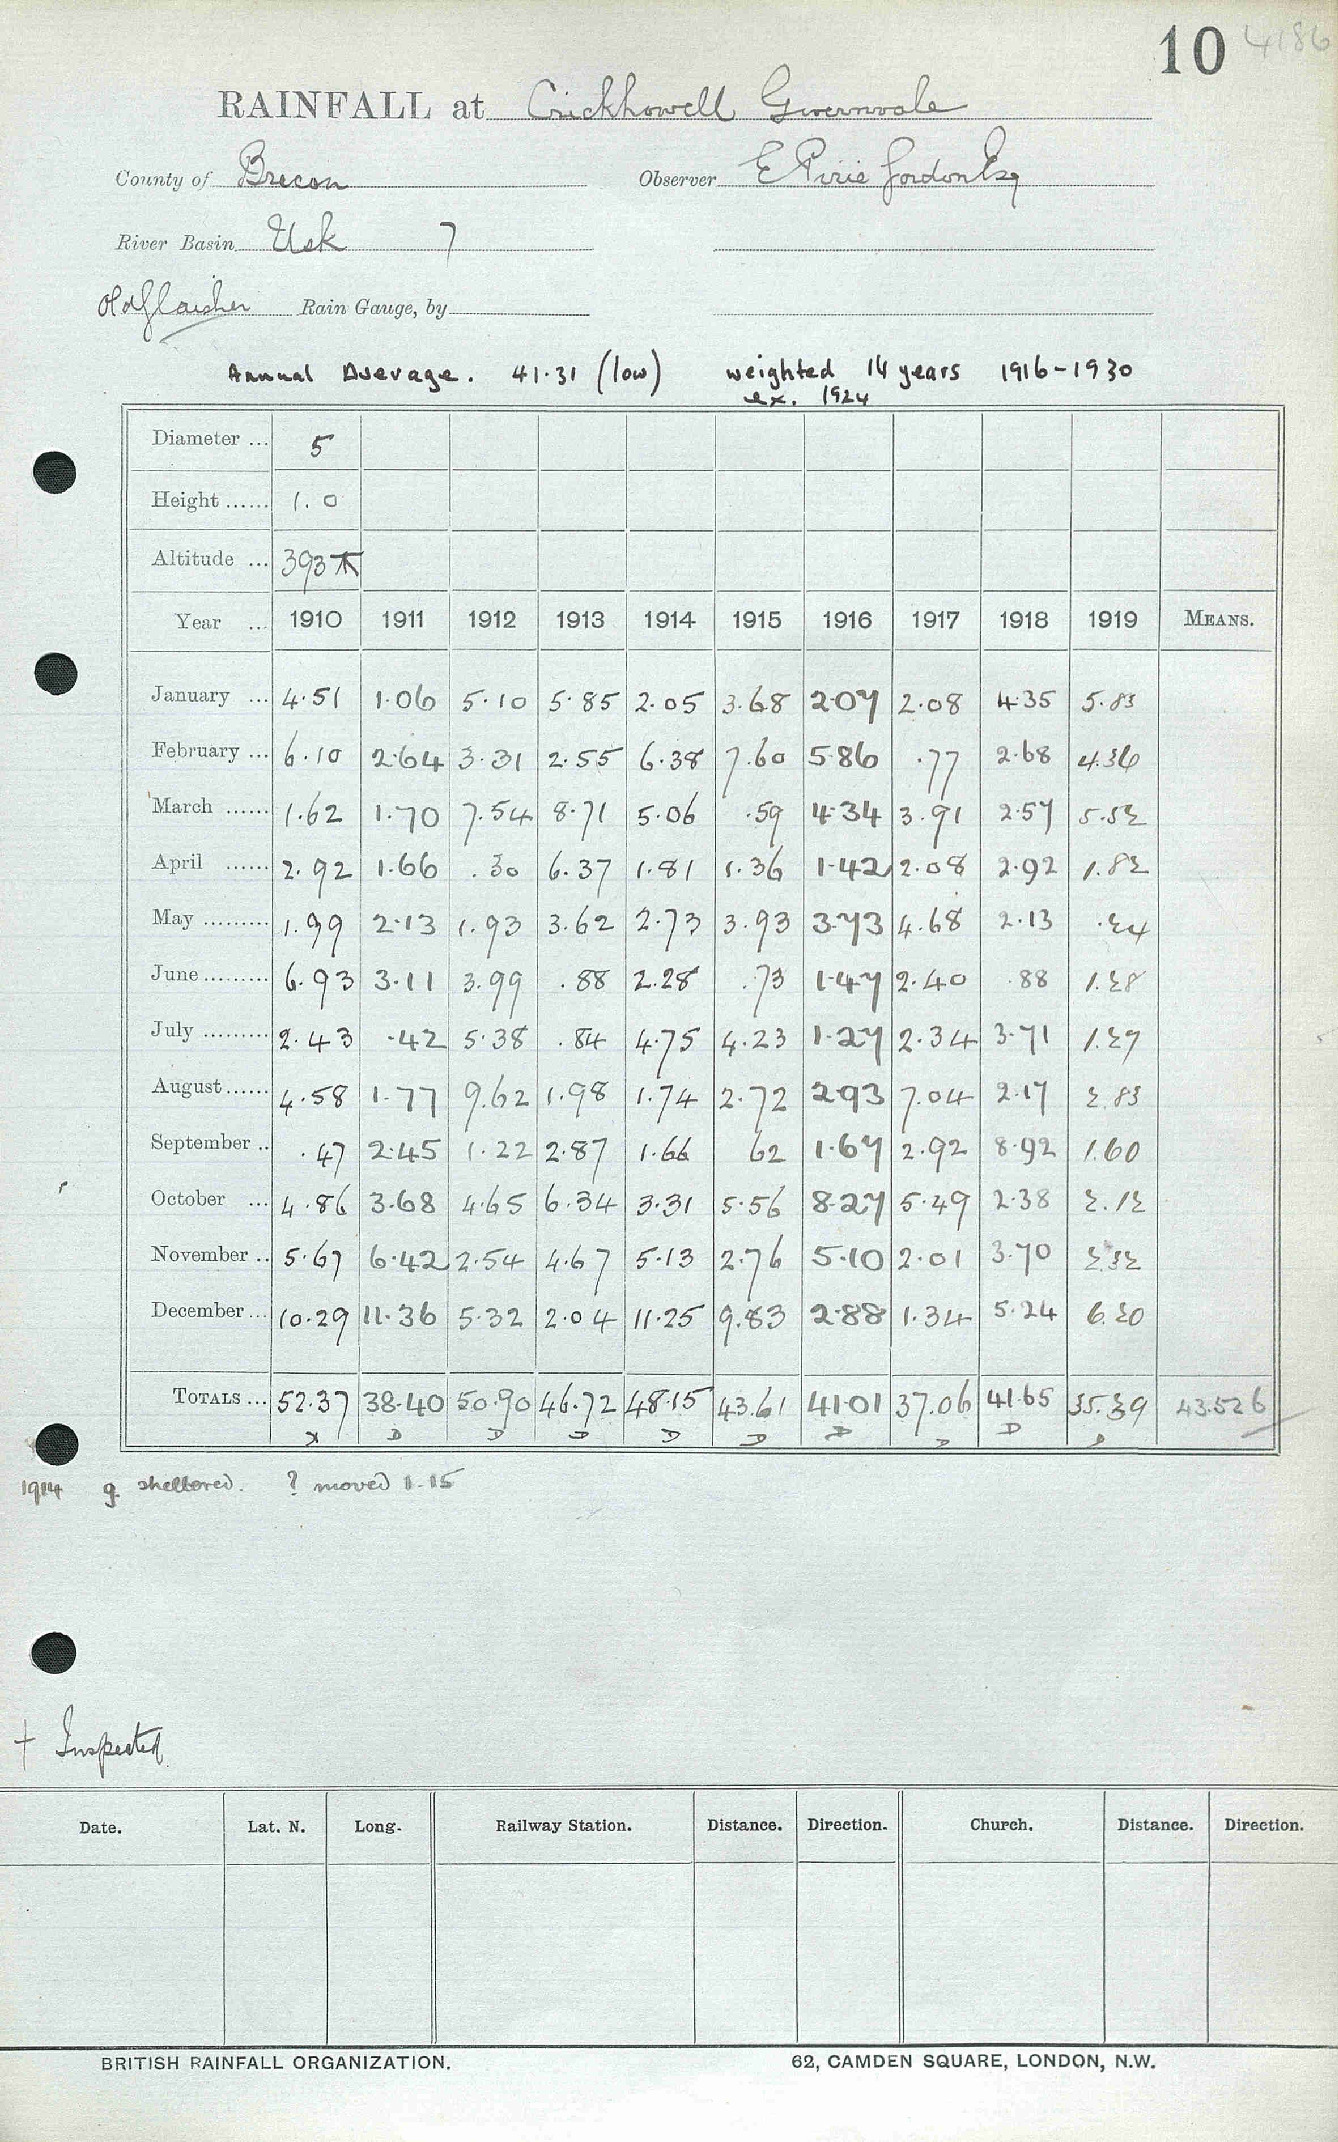 10 4186
RAINFALL at Crickhowell Gwernvale
County of Brecon Observer E Pirie Gordon Esq
River Basin Usk 7
Old Glaisher Rain Gauge, by
Annual Average. 41.31 (low) weighted 14 years 1916-1930
ex. 1924
Diameter ... 5
Height ...... 1.0
Altitude ... 393
Year ... 1910 1911 1912 1913 1914 1915 1916 1917 1918 1919 MEANS.
January ... 4.51 1.06 5.10 5.85 2.05 3.68 2.07 2.08 4.35 5.83
February ... 6.10 2.64 3.31 2.55 6.38 7.60 5.86 .77 2.68 4.36
March ...... 1.62 1.70 7.54 8.71 5.06 .59 4.34 3.91 2.57 5.52
April ...... 2.92 1.66 .30 6.37 1.81 1.36 1.42 2.08 2.92 1.82
May ......... 1.99 2.13 1.93 3.62 2.73 3.93 3.73 4.68 2.13 .24
June ......... 6.93 3.11 3.99 .88 2.28 .73 1.47 2.40 .88 1.28
July ......... 2.43 .42 5.38 .84 4.75 4.23 1.27 2.34 3.71 1.27
August ...... 4.58 1.77 9.62 1.98 1.74 2.72 2.93 7.04 2.17 2.83
September .. .47 2.45 1.22 2.87 1.66 62 1.67 2.92 8.92 1.60
October ... 4.86 3.68 4.65 6.34 3.31 5.56 8.27 5.49 2.38 2.12
November .. 5.67 6.42 2.54 4.67 5.13 2.76 5.10 2.01 3.70 2.32
December ... 10.29 11.36 5.32 2.04 11.25 9.83 2.88 1.34 5.24 6.20
TOTALS ... 52.37 38.40 50.90 46.72 48.15 43.61 41.01 37.06 41.65 35.39 43.526
x D D D D D D D D D
1914 g. sheltered. ? moved 1.15
+ Inspected
Date. Lat. N. Long. Railway Station. Distance. Direction. Church. Distance. Direction.
BRITISH RAINFALL ORGANIZATION. 62, CAMDEN SQUARE, LONDON, N.W.